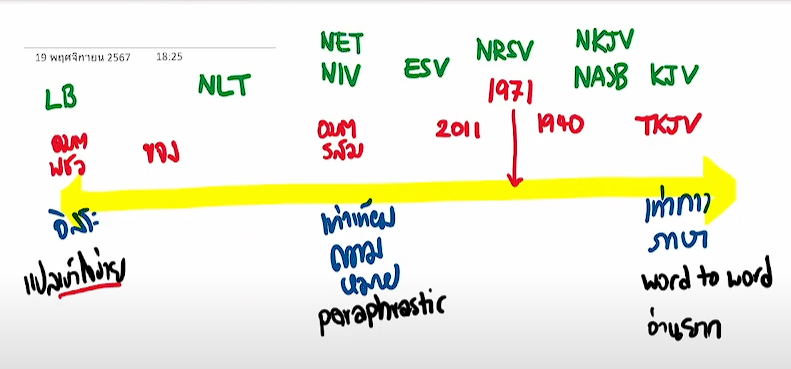 19 พฤศจิกายน 2567 18:25
LB
NLT
NET
NIV
ESV
NRSV
NKJV
NASB
KJV
อมต
ของ
อมต
2011
1971
1940
TKJV
อิสระ
แปลเข้าใจง่าย
เท่าเทียม
ความ
หมาย
paraphrastic
เท่าการ
ภาษา
word to word
อ่านยาก